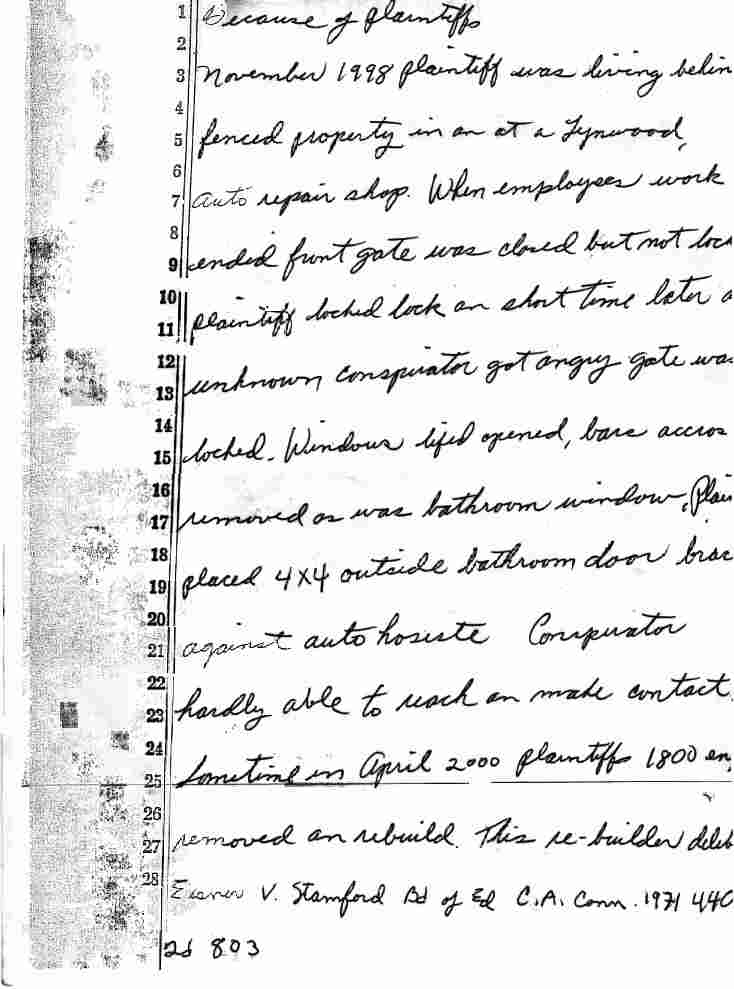 1 Because of plaintiffs
2
3 November 1998 plaintiff was living behin
4
5 fenced property in an at a Lynwood,
6
7 auto repair shop. When employees work
8
9 ended front gate was closed but not loc
10
11 plaintiff locked lock an short time later a
12
13 unknown conspirator got angry gate was
14
15 locked. Windows lifed opened, bars accros
16
17 removed as was bathroom window, Plain
18
19 placed 4x4 outside bathroom door brac
20
21 against auto hoiste Conspirator
22
23 hardly able to reach an make contact.
24
25 Sometime in April 2000 plaintiffs 1800 en
26
27 removed an rebuild. This re-builder delib
28 V. Stamford Bd of Ed C.A. Conn. 1971 440
2d 803